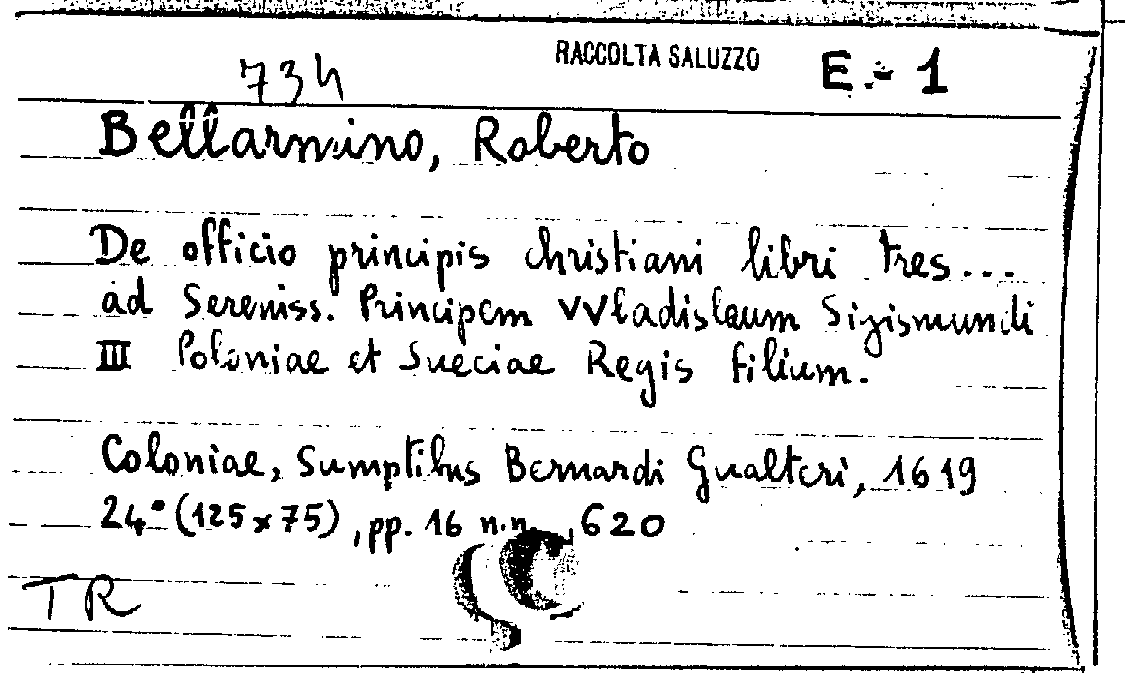 734 RACCOLTA SALUZZO E.- 1
Bellarmino, Roberto
De officio principis christiani libri tres...
ad Sereniss. Principem VVladislaum Sigismundi
III Poloniae et Sueciae Regis filium.
Coloniae, Sumptibus Bernardi Gualteri, 1619
24° (125x75), pp. 16 n.n., 620
TR